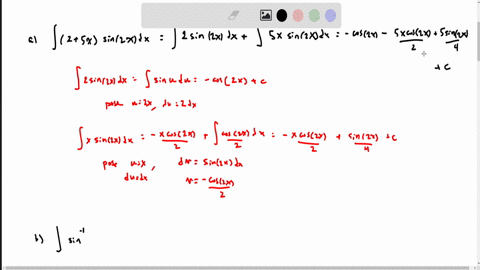 a) ∫(2+5x) sin(2x)dx = ∫2 sin(2x)dx + ∫ 5x sin(2x)dx = -cos(2x) - 5xcos(2x)/2 + 5sin(2x)/4
+ c
∫2sin(2x)dx = ∫sin u du = -cos(2x) + c
pose u=2x, du=2dx
∫x sin(2x)dx = -x cos(2x)/2 + ∫cos(2x)/2 dx = -x cos(2x)/2 + sin(2x)/4 + c
pose u=x, dv = sin(2x)dx
du=dx v = -cos(2x)/2
b) ∫ sin⁻¹